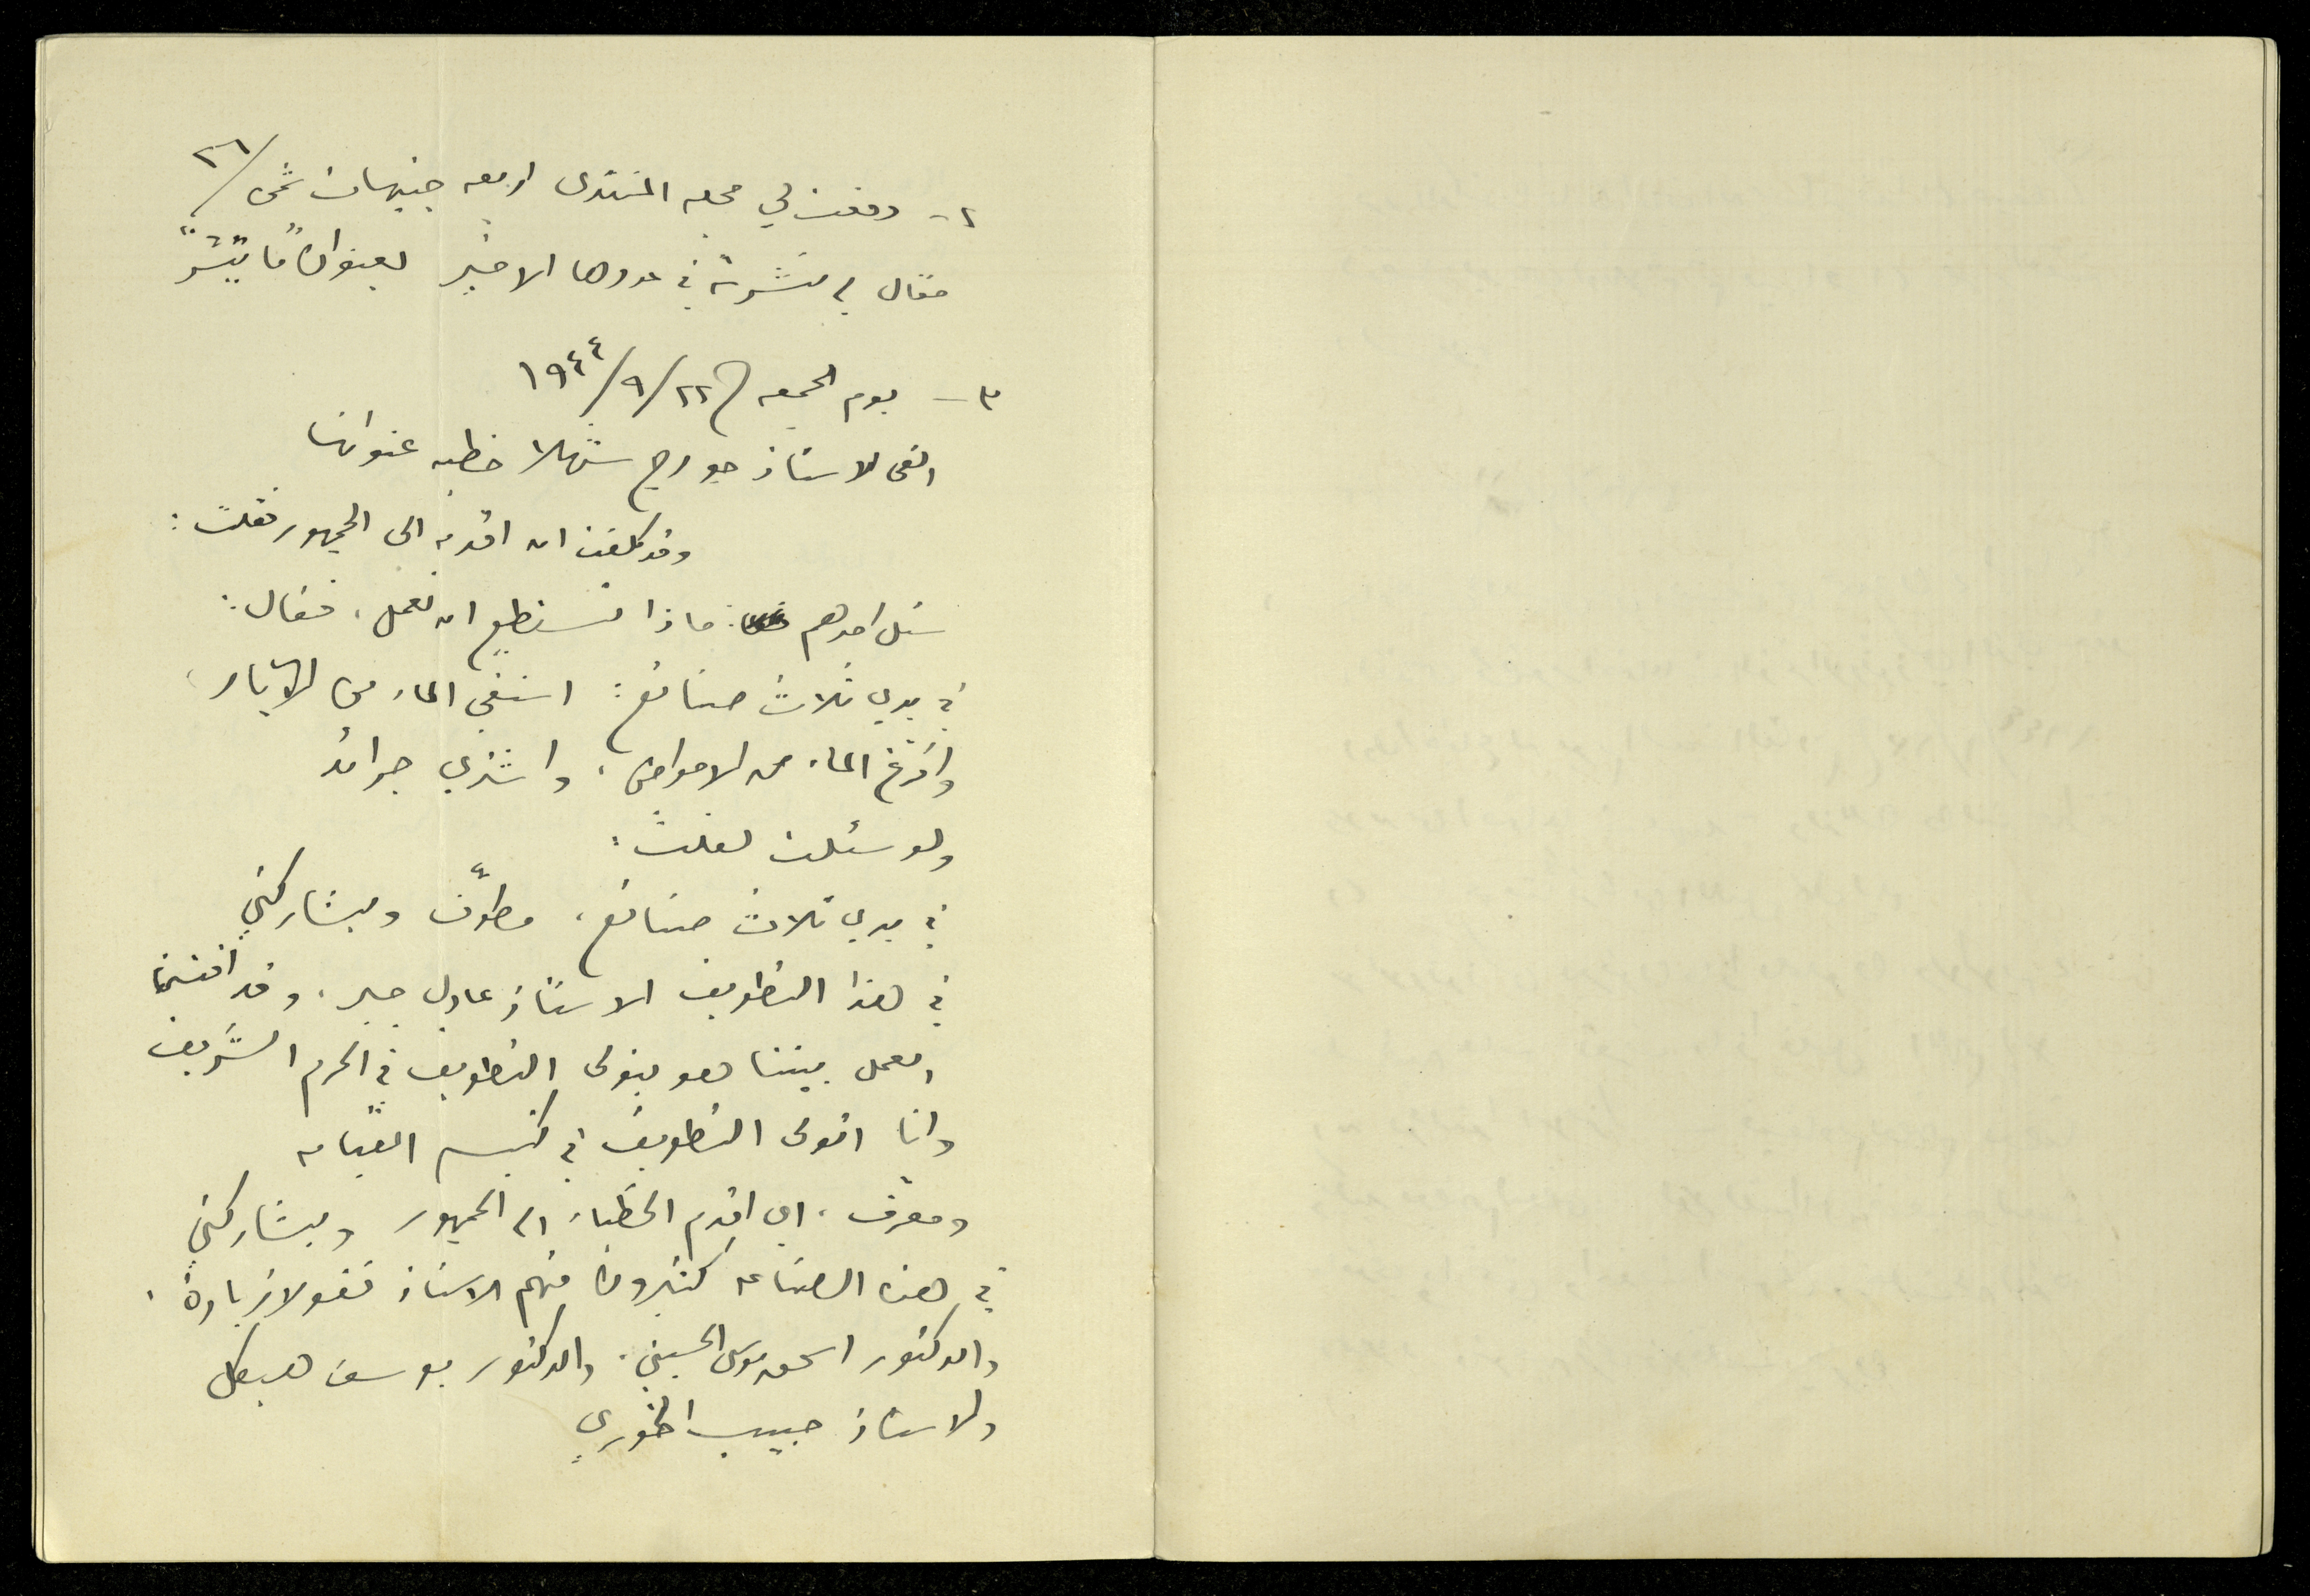 ٢- دفعت لي مجله المنتدى اربعه جنيهات ثمن
مقال لي نشرته في عددها الاخير بعنوان "ما تيسّر"
٣- يوم الجمعه ٢٢/٩/١٩٤٤
القى الاستاذ جورج شهلا خطبه عنوانها
وقد كلفت ان اقدمه الى الجمهور فقلت:
سئل احدهم: ماذا تستطيع ان تعمل، فقال:
في يدي ثلاث صنائع: استقي الماء من الآبار،
وافرغ الماء من الاحواض، واشتري جرائد
ولو سئلت لقلت:
في يدي ثلاث صنائع، مطوّف ويشاركني
في هذا التطويف الاستاذ عادل جبر، وقد اقتسمنا
العمل بيننا هو يتولى التطويف في الحرم الشريف
وانا اتولى التطويف في كنيسه القيامه
ومعرّف، اي اقدم الخطباء الى الجمهور ويشاركني
في هذه الصناعه كثيرون منهم الاستاذ نقولا زياده،
والدكتور اسحق موسى الحسيني، والدكتور يوسف هيكل
والاستاذ حبيب الخوري